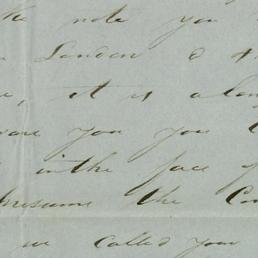 the note you
London &
it is a
you you
in the face of
presume the Con
we called your